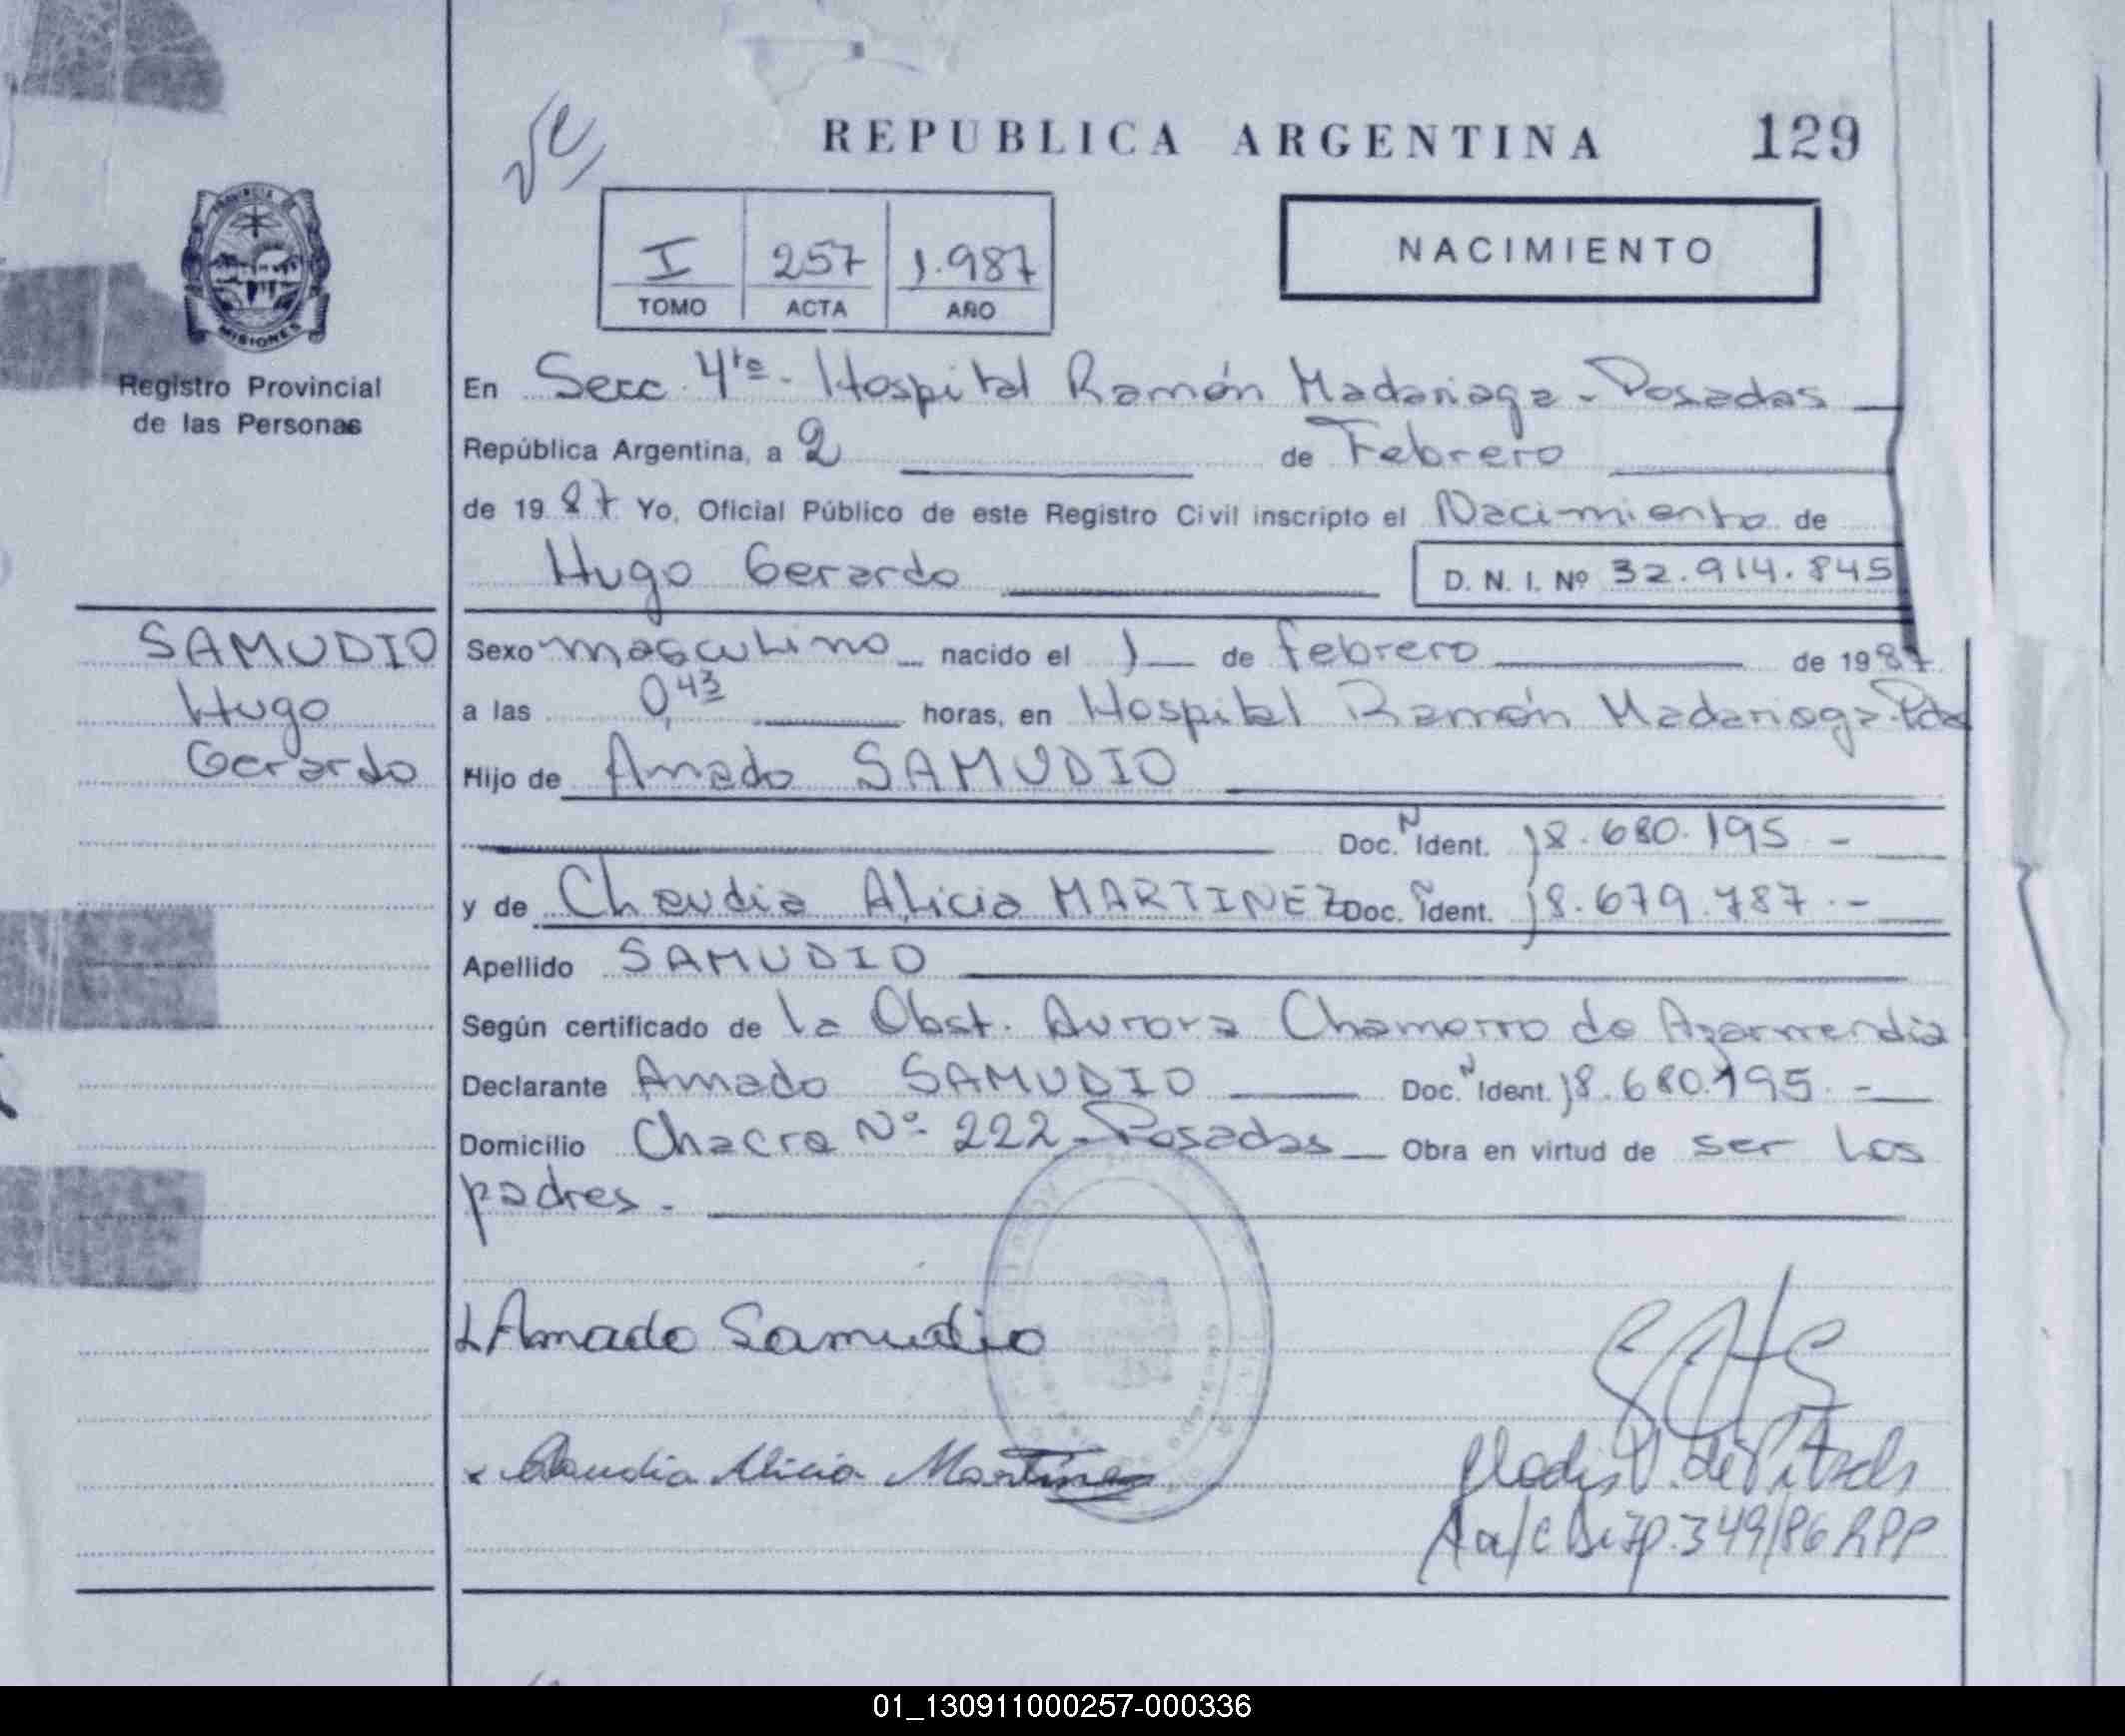 REPUBLICA ARGENTINA 129
NACIMIENTO
I 257 1.987
TOMO ACTA AÑO
PROVINCIA DE
MISIONES
Registro Provincial
de las Personas
En Secc. 4ta - Hospital Ramón Madariaga - Posadas
República Argentina, a 2 de Febrero
de 1987 Yo, Oficial Público de este Registro Civil inscripto el Nacimiento de
Hugo Gerardo D. N. I. Nº 32.914.845
SAMUDIO
Hugo
Gerardo
Sexo masculino nacido el 1 de febrero de 1987
a las 0,43 horas, en Hospital Ramón Madariaga - Pdas
Hijo de Amado SAMUDIO
Doc. N Ident. 18.680.195 -
y de Claudia Alicia MARTINEZ Doc. N Ident. 18.679.787 -
Apellido SAMUDIO
Según certificado de la Obst. Aurora Chamorro de Azarmendia
Declarante Amado SAMUDIO Doc. N Ident. 18.680.195 -
Domicilio Chacra Nº 222 - Posadas Obra en virtud de ser los
padres.
Amado Samudio
x Claudia Alicia Martinez
A a/c Disp. 349/86 RPP
01_130911000257-000336